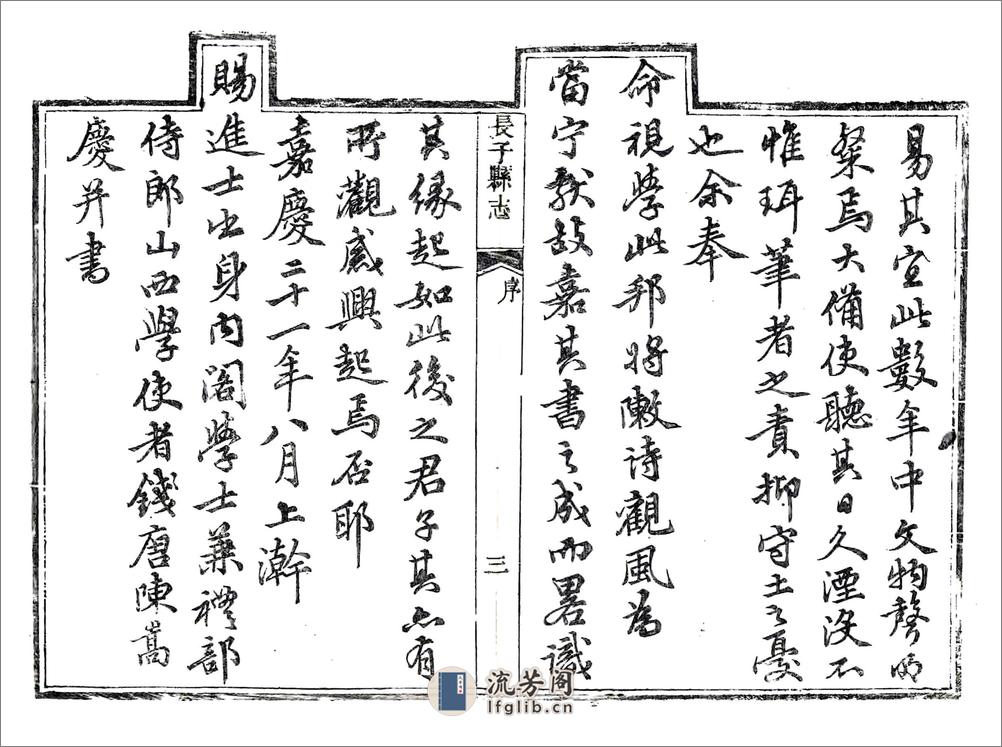 易其宜此數年中文物聲明
粲焉大備使聽其日久湮沒不
惟珥筆者之責抑守土之憂
也余奉
命視學此邦將敶詩觀風為
當宁獻故嘉其書之成而畧識
長子縣志
序
三
其緣起如此後之君子其亦有
所觀感興起焉否耶
嘉慶二十一年八月上澣
賜
進士出身內閣學士兼禮部
侍郎山西學使者錢唐陳嵩
慶并書
流芳阁
lfglib.cn